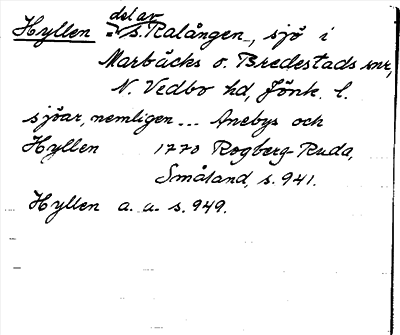 del av
Hyllen = S. Ralången, sjö i
Marbäcks o. Bredestads snr,
N. Vedbo hd, Jönk. l.
sjöar, nemligen ... Anebys och
Hyllen 1770 Rogberg-Ruda,
Småland, s. 941.
Hyllen a. a. s. 949.